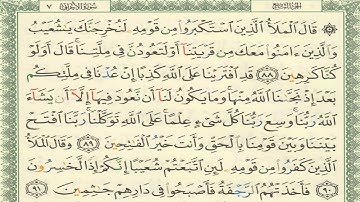 الجزء التاسع ٧ سورة الأعراف
۞ قَالَ ٱلْمَلَأُ ٱلَّذِينَ ٱسْتَكْبَرُوا۟ مِن قَوْمِهِۦ لَنُخْرِجَنَّكَ يَٰشُعَيْبُ
وَٱلَّذِينَ ءَامَنُوا۟ مَعَكَ مِن قَرْيَتِنَآ أَوْ لَتَعُودُنَّ فِى مِلَّتِنَا قَالَ أَوَلَوْ
كُنَّا كَٰرِهِينَ ٨٨ قَدِ ٱفْتَرَيْنَا عَلَى ٱللَّهِ كَذِبًا إِنْ عُدْنَا فِى مِلَّتِكُم
بَعْدَ إِذْ نَجَّىٰنَا ٱللَّهُ مِنْهَا وَمَا يَكُونُ لَنَآ أَن نَّعُودَ فِيهَآ إِلَّآ أَن يَشَآءَ
ٱللَّهُ رَبُّنَا وَسِعَ رَبُّنَا كُلَّ شَىْءٍ عِلْمًا عَلَى ٱللَّهِ تَوَكَّلْنَا رَبَّنَا ٱفْتَحْ
بَيْنَنَا وَبَيْنَ قَوْمِنَا بِٱلْحَقِّ وَأَنتَ خَيْرُ ٱلْفَٰتِحِينَ ٨٩ وَقَالَ ٱلْمَلَأُ
ٱلَّذِينَ كَفَرُوا۟ مِن قَوْمِهِۦ لَئِنِ ٱتَّبَعْتُمْ شُعَيْبًا إِنَّكُمْ إِذًا لَّخَٰسِرُونَ
٩٠ فَأَخَذَتْهُمُ ٱلرَّجْفَةُ فَأَصْبَحُوا۟ فِى دَارِهِمْ جَٰثِمِينَ ٩١